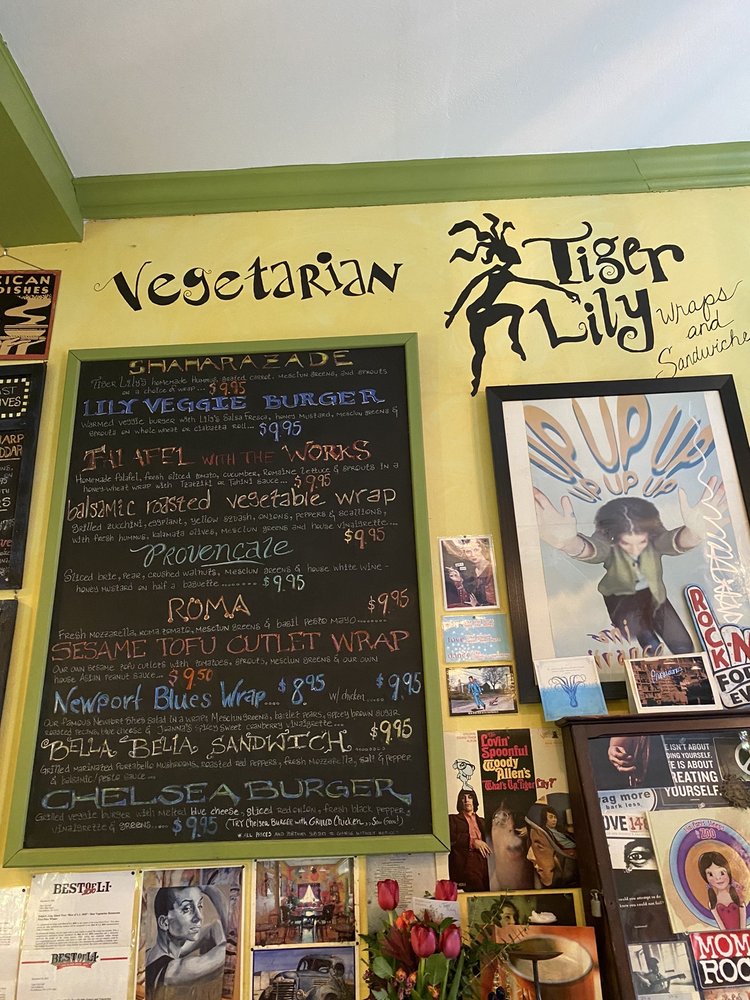 Vegetarian
Tiger
Lily
Wraps
and
Sandwiche
SHAHARAZADE
Tiger Lily's homemade hummus, grated carrot, mesclun greens, and sprouts
on a choice of wrap... $9.95
LILY VEGGIE BURGER
Warmed veggie burger with Lily's salsa fresca, honey mustard, mesclun greens &
sprouts on whole wheat or ciabatta roll... $9.95
FALAFEL WITH THE WORKS
Homemade falafel, fresh sliced tomato, cucumber, romaine lettuce & sprouts in a
honey-wheat wrap with Tzatziki or Tahini sauce... $9.95
balsamic roasted vegetable wrap
Grilled zucchini, eggplant, yellow squash, onions, peppers & scallions,
with fresh hummus, kalamata olives, mesclun greens and house vinaigrette...
$9.95
Provencale
Sliced brie, pear, crushed walnuts, mesclun greens & house white wine-
honey mustard on half a baguette........ $9.95
ROMA $9.95
Fresh mozzarella, roma tomato, mesclun greens & basil pesto mayo........
SESAME TOFU CUTLET WRAP
Our own sesame tofu cutlets with tomatoes, sprouts, mesclun greens & our own
house Asian peanut sauce... $9.50
Newport Blues Wrap... $8.95 w/ chicken... $9.95
Our famous Newport Blues salad in a wrap! Mesclun greens, bartlet pears, spicey brown sugar
roasted pecans, blue cheese & Joanna's spicey sweet cranberry vinaigrette...
BELLA BELLA SANDWICH....... $9.95
Grilled marinated portabello mushrooms, roasted red peppers, fresh mozzarella, salt & pepper
& balsamic/pesto sauce...
CHELSEA BURGER
Grilled veggie burger with melted blue cheese, sliced red onion, fresh black pepper,
vinaigrette & greens... $9.95 (Try Chelsea Burger with Grilled Chicken... Soo Good!)
XICAN
DISHES
UP UP UP
UP UP UP
ROCK
N
FOR
EV
The
Lovin' Spoonful
Woody
Allen's
"What's Up, Tiger Lily?"
BEST OF L.I.
BEST OF L.I.
BEST OF L.I.
wag more
bark less
LOVE 14
ISN'T ABOUT
FINDING YOURSELF.
LIFE IS ABOUT
CREATING
YOURSELF.
ZOO
MOM
ROCK